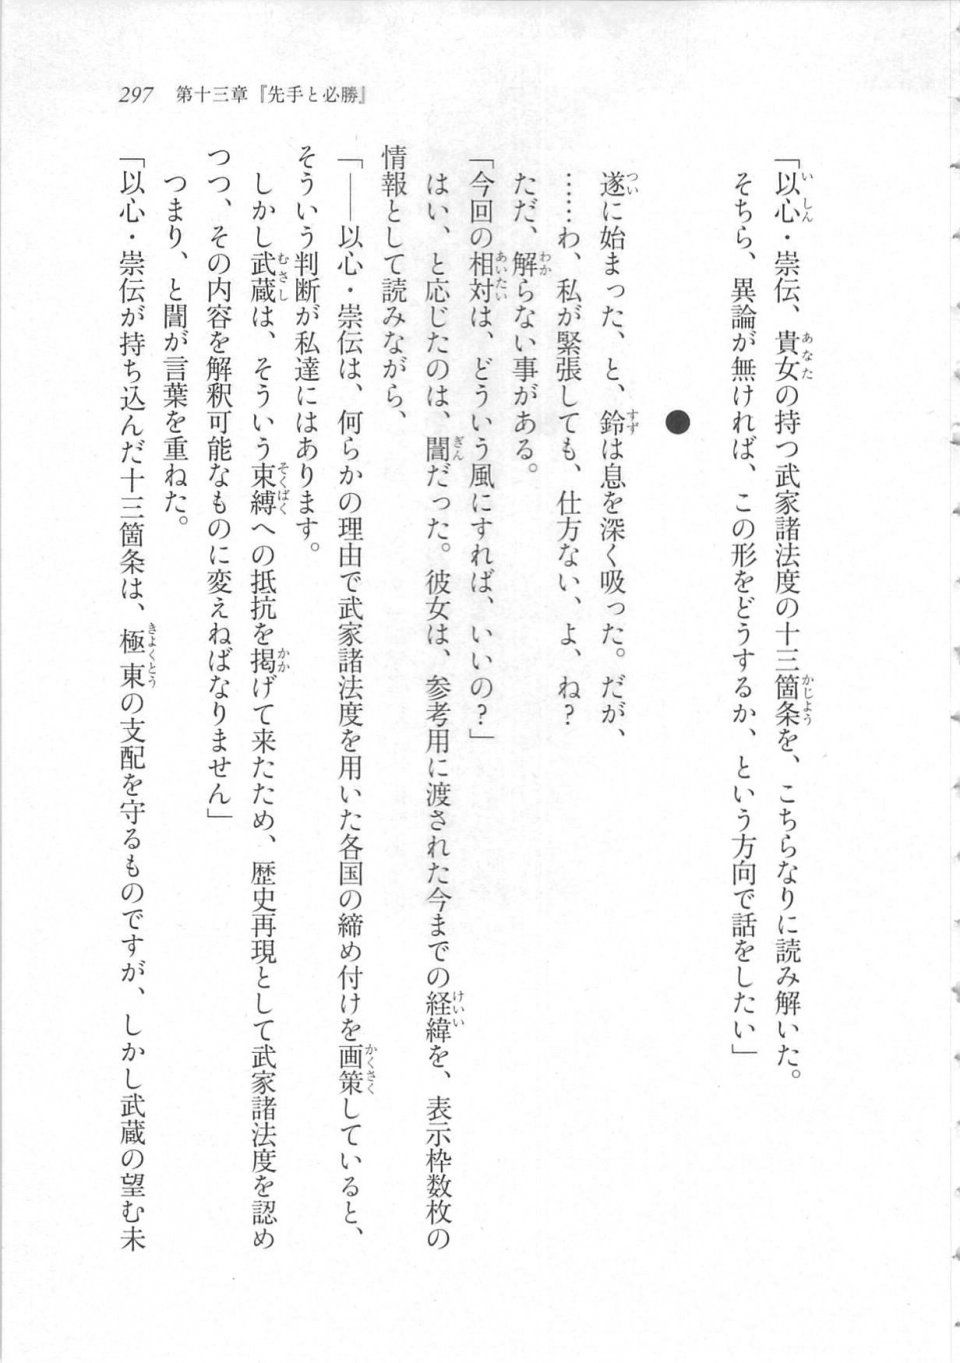 297　第十三章『先手と必勝』
「以心・崇伝、貴女の持つ武家諸法度の十三箇条を、こちらなりに読み解いた。
そちら、異論が無ければ、この形をどうするか、という方向で話をしたい」
●
遂に始まった、と、鈴は息を深く吸った。だが、
……わ、私が緊張しても、仕方ない、よ、ね？
ただ、解らない事がある。
「今回の相対は、どういう風にすれば、いいの？」
はい、と応じたのは、誾だった。彼女は、参考用に渡された今までの経緯を、表示枠数枚の
情報として読みながら、
「――以心・崇伝は、何らかの理由で武家諸法度を用いた各国の締め付けを画策していると、
そういう判断が私達にはあります。
しかし武蔵は、そういう束縛への抵抗を掲げて来たため、歴史再現として武家諸法度を認め
つつ、その内容を解釈可能なものに変えねばなりません」
つまり、と誾が言葉を重ねた。
「以心・崇伝が持ち込んだ十三箇条は、極東の支配を守るものですが、しかし武蔵の望む未